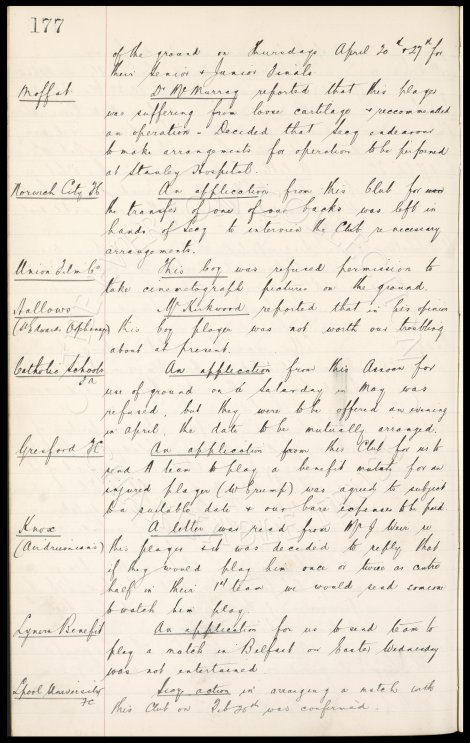 177
of the ground on Thursdays April 20th & 27th for
their Senior & Junior Finals
Moffat Dr McMurray reported that this player
was suffering from loose cartilage & reccommended
an operation - Decided that Secy endeavour
to make arrangements for operation to be performed
at Stanley Hospital
Norwich City FC An application from this Club for
the transfer of one of our backs was left in
hands of Secy to interview the Club re necessary
arrangements.
Union Film Co This Coy was refused permission to
take cinematograph pictures on the ground.
Hallows Mr Kirkwood reported that in his opinion
(St Edwards Orphanage) this boy player was not worth our troubling
about at present.
Catholic Schools An application from this Assocn for
use of ground on a Saturday in May was
refused, but they were to be offered an evening
in April, the date to be mutually arranged.
Gresford FC An application from this Club for us to
send A team to play a benefit match for an
injured player (W Crump) was agreed to subject
to a suitable date & our bare expenses to be paid.
Knox A letter was read from Mr J Weir re
(Airdrieonians) this player & it was decided to reply that
if they would play him once or twice as centre
half in their 1st team we would send someone
to watch him play
Lyners Benefit An application for us to send team to
play a match in Belfast on Easter Wednesday
was not entertained
Lpool University FC Secy action in arranging a match with
this Club on Feb was confirmed.